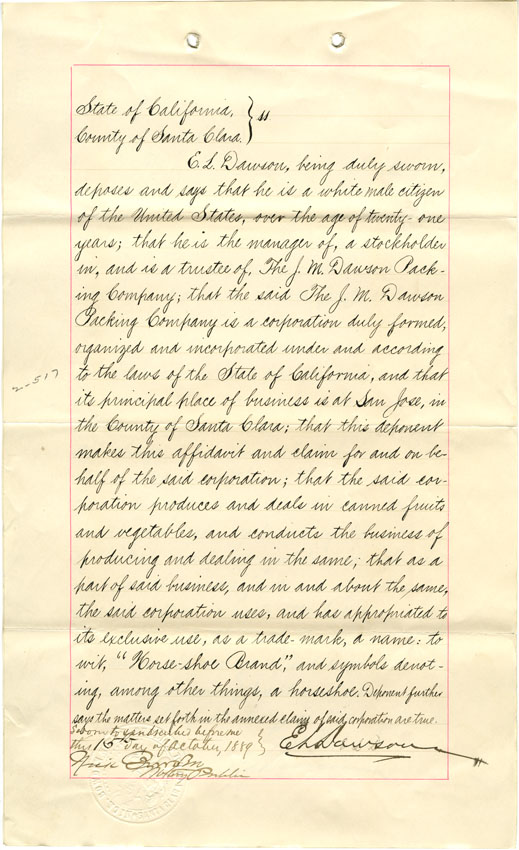 State of California,
County of Santa Clara. } ss
E. L. Dawson, being duly sworn,
deposes and says that he is a white male citizen
of the United States, over the age of twenty-one
years; that he is the manager of, a stockholder
in, and is a trustee of, The J. M. Dawson Pack-
ing Company; that the said The J. M. Dawson
Packing Company is a corporation duly formed,
organized and incorporated under and according
to the laws of the State of California, and that
its principal place of business is at San Jose, in
the County of Santa Clara; that this deponent
makes this affidavit and claim for and on be-
half of the said corporation; that the said cor-
poration produces and deals in canned fruits
and vegetables, and conducts the business of
producing and dealing in the same; that as a
part of said business, and in and about the same,
the said corporation uses, and has appropriated to
its exclusive use, as a trade-mark, a name: to
wit, "Horse-shoe Brand", and symbols denot-
ing, among other things, a horseshoe. Deponent further
says the matters set forth in the annexed claim of said corporation are true.
Sworn to and subscribed before me
this 15th day of October, 1889 } E L Dawson
Notary Public
2-517